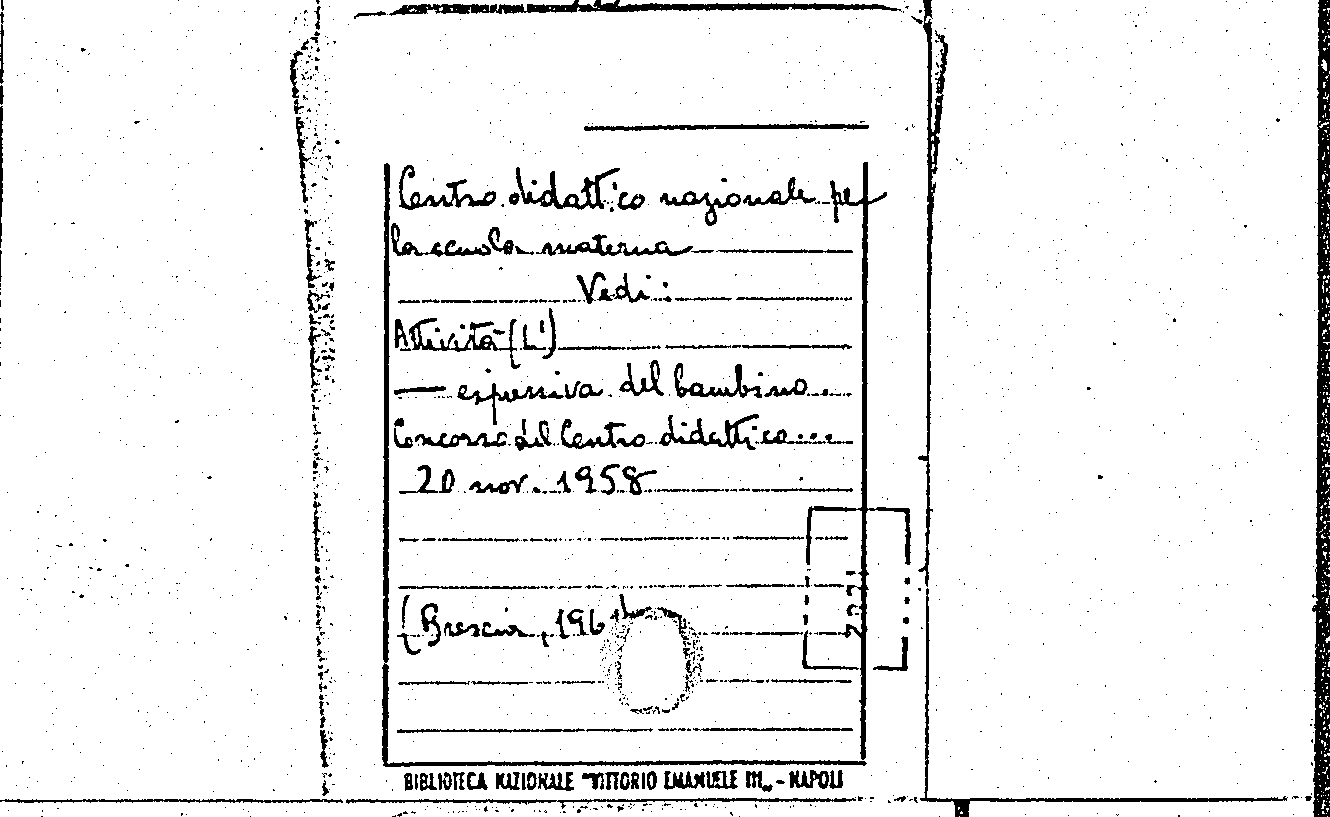 Centro didattico nazionale per
la scuola materna
Vedi:
Attività (L')
— espressiva del bambino.
Concorso del Centro didattico...
20 nov. 1958
(Brescia, 196
BIBLIOTECA NAZIONALE "VITTORIO EMANUELE III„ - NAPOLI